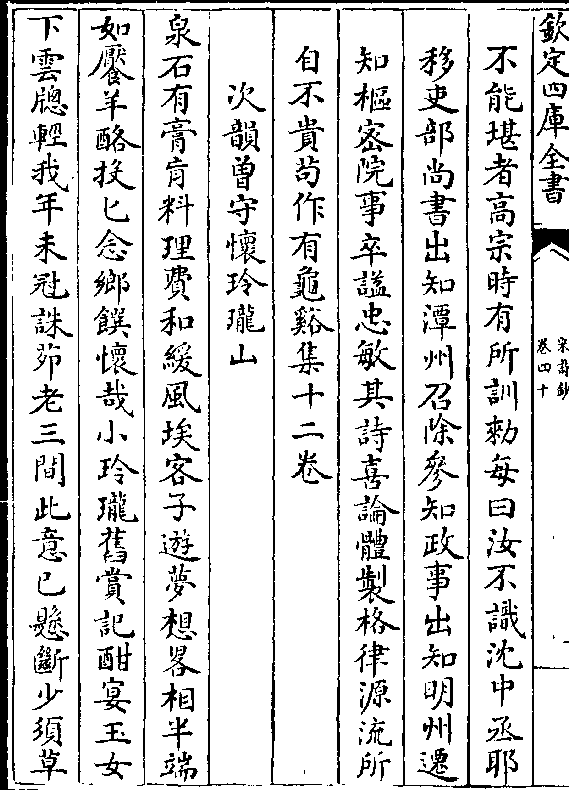 欽定四庫全書
宋詩鈔
卷四十
不能堪者高宗時有所訓勑每曰汝不識沈中丞耶
移吏部尚書出知潭州召除參知政事出知明州遷
知樞宻院事卒諡忠敏其詩喜論體製格律源流所
自不貴茍作有龜谿集十二卷
次韻曽守懷玲瓏山
泉石有膏肓料理費和緩風埃客子遊夢想畧相半端
如饜羊酪投匕念鄉饌懷哉小玲瓏舊賞記酣宴玉女
下雲牕輕我年未冠誅茆老三間此意已懸斷少須草